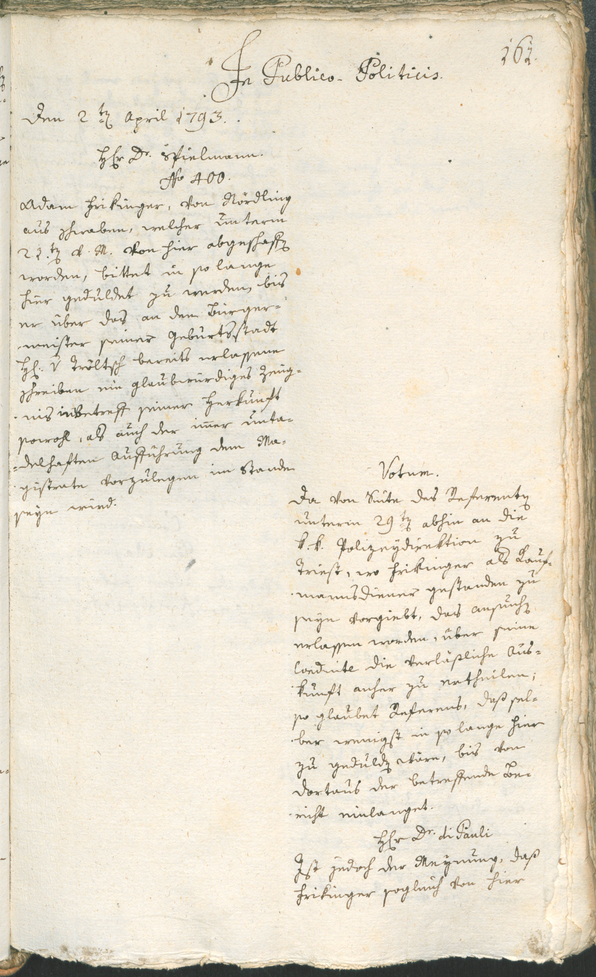 161.
In Publico-Politicis.
Den 2 tn April 1793.
Hr Dr. Spielmann.
No 400.
Adam Frikinger, von Nördling
aus Schwaben, welcher unterm
22. tn v. M. von hier abgeschaft
worden, bittet in so lange
hier geduldet zu werden, bis
er über das an dem Burger-
meister seiner Geburtsstadt
H: v Tröltsch bereits erlassene
Schreiben ein glaubwürdiges Zeug-
nis inbetreff seiner Herkunft
sowohl, als auch der imer unta-
delhaften Aufführung dem Ma-
gistrate vorzulegen im Stande
seyn wird.
Votum.
Da von Seite des Referenten
unterm 29 tn abhin an die
k. k. Polizeydirektion zu
Triest, wo Frikinger als Kauf-
mannsdiener gestanden zu
seyn vorgiebt, das Ansuchen
erlassen worden, über seine
die verläßliche Aus-
kunft anher zu ertheilen;
so glaubet Referens, daß sel-
ber wenigst in so lange hier
zu gedulden wäre, bis von
dortaus der betreffende Be-
richt einlanget.
Hr Dr. di Pauli
Ist jedoch der Meynung, daß
Frikinger sogleich von hier